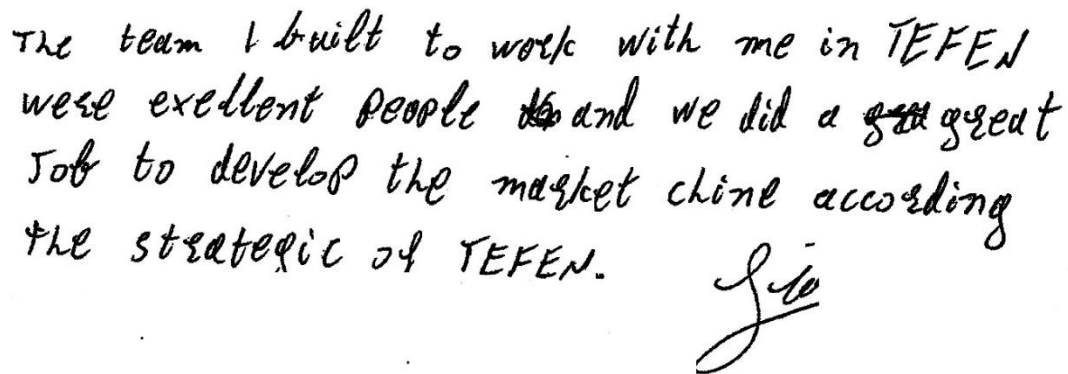 The team I built to work with me in TEFEN
were exellent people and we did a great
Job to develop the market chine according
the strategic of TEFEN.